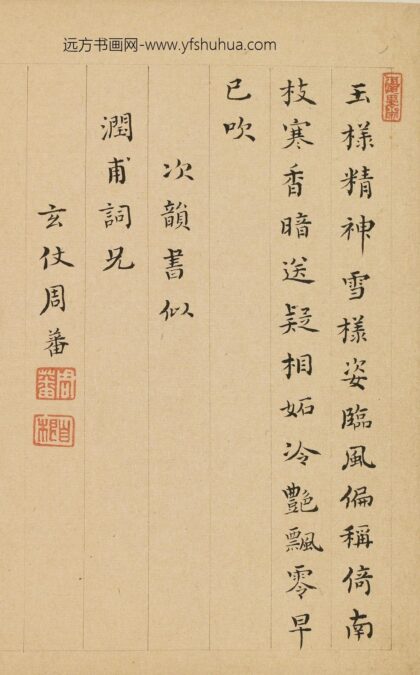 远方书画网-www.yfshuhua.com
玉樣精神雪樣姿臨風偏稱倚南
枝寒香暗送疑相妬冷艶飄零早
已吹
次韻書似
潤甫詞兄
玄仗周蕃